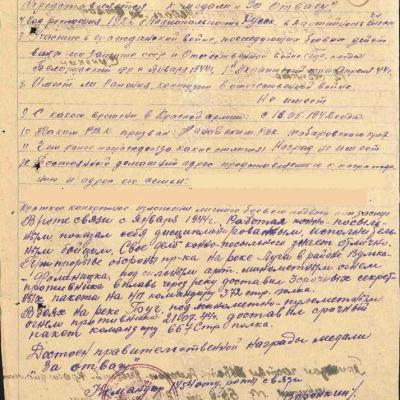 Представляется к медали "За отвагу"
4. Год рождения 192 Национальность Русск Партийность
Участие в гражданской войне, последующих боевых действ
по защите СССР и Отечественной войне (где, когда
Белорусский фр с января 1944, 1й Украинский фр апреля 44г.
8. Имеет ли ранения, контузии в отечественной войне.
Не имеет
9. С какого времени в Красной армии: с 18.05.1942 года.
10. Каким РВК призван: Нанайским РВК Хабаровского края
11. Чем ранее награжден (за какие отличия) Наград не имеет
12. Постоянный домашний адрес представляемого к награжде
нию и адрес его семьи:
Краткое конкретное изложение личного боевого подвига или заслуг
В роте связи с января 1944г. Работая конно-посыль
ным показал себя дисциплинированным, исполнитель
ным бойцом. Свое дело конно-посыльного знает отлично.
При прорыве обороны пр-ка на реке Луга в районе Вулька-
под сильным арт. минометным огнем
противника вплавь через реку доставил 3 срочных секрет
ных пакета на НП командиру 572 стр. полка.
В боях на реке Буг, под минометно-пулеметным
огнем противника 21.07.44г. доставил срочный
пакет командиру 667 стр. полка.
Достоин правительственной награды медали
"За отвагу"
Командир 454 отд. роты связи